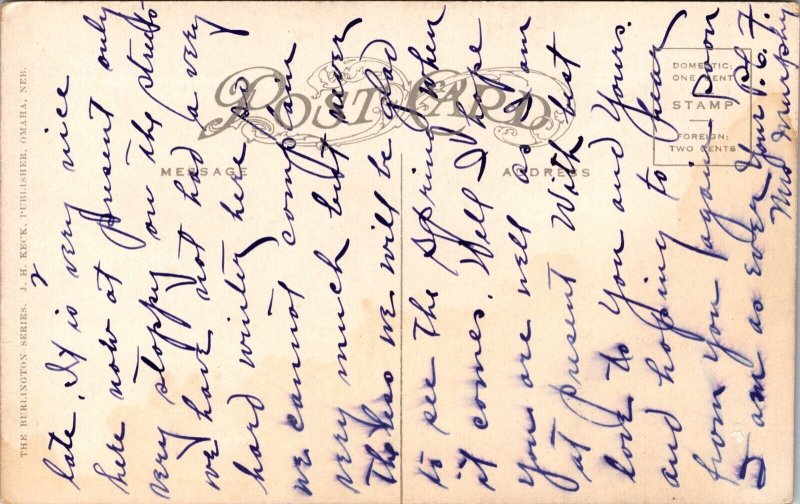 THE BURLINGTON SERIES. J. H. KECK, PUBLISHER, OMAHA, NEB.
POST CARD
MESSAGE
ADDRESS
DOMESTIC:
ONE CENT
STAMP
FOREIGN:
TWO CENTS
late. It is very nice
here now at present only
very sloppy on the streets
we have not had a very
hard winter here so
we cannot complain
very much but never
the less we will be glad
to see the Spring when
it comes. Well I hope
you are well as I am
at present With best
love to You and Yours.
and hoping to hear
from You again soon
I am as ever Your P.C.F.
Mrs Murphy